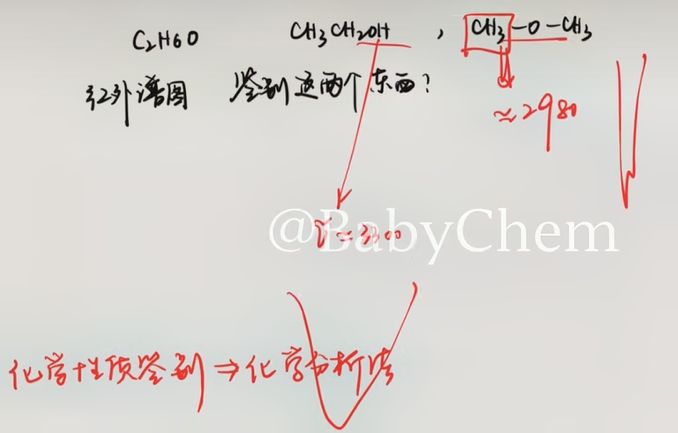 C2H6O CH3CH2OH , CH3-O-CH3
红外谱图 鉴别这两个东西?
≈2980
@BabyChem
ν̃≈3300
化学性质鉴别⇒化学分析法